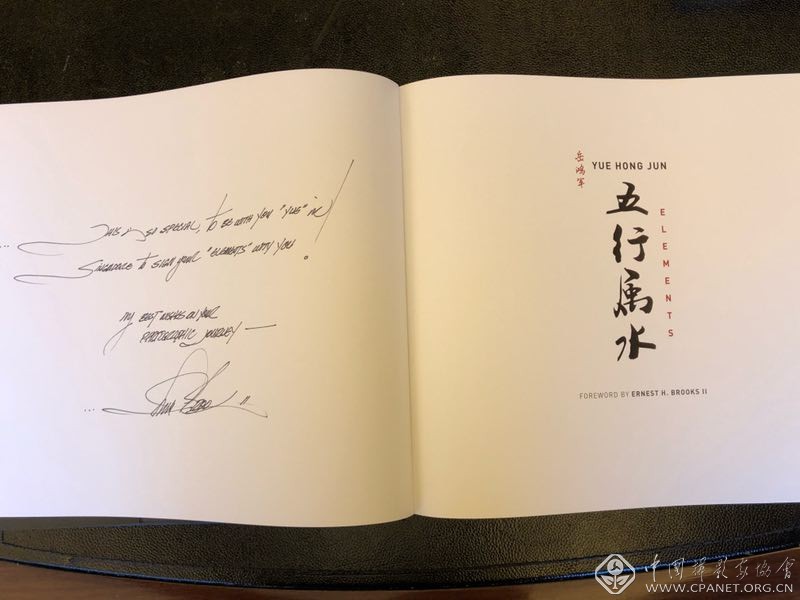 ... This is so special, to be with you "Yue" in
Singapore to sign your "Elements" with you!
my best wishes on your
photographic journey —
... II
岳鴻军
YUE HONG JUN
五行属水
ELEMENTS
FOREWORD BY ERNEST H. BROOKS II
中国摄影家协会
WWW.CPANET.ORG.CN